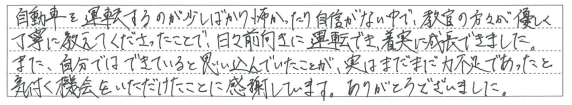 自動車を運転するのが少しばかり怖かったり自信がない中で、教官の方々が優しく
丁寧に教えてくださったことで、日々前向きに運転でき、着実に成長できました。
また、自分ではできていると思い込んでいたことが、実はまだまだ力不足であったと
気付く機会をいただけたことに感謝しています。ありがとうございました。